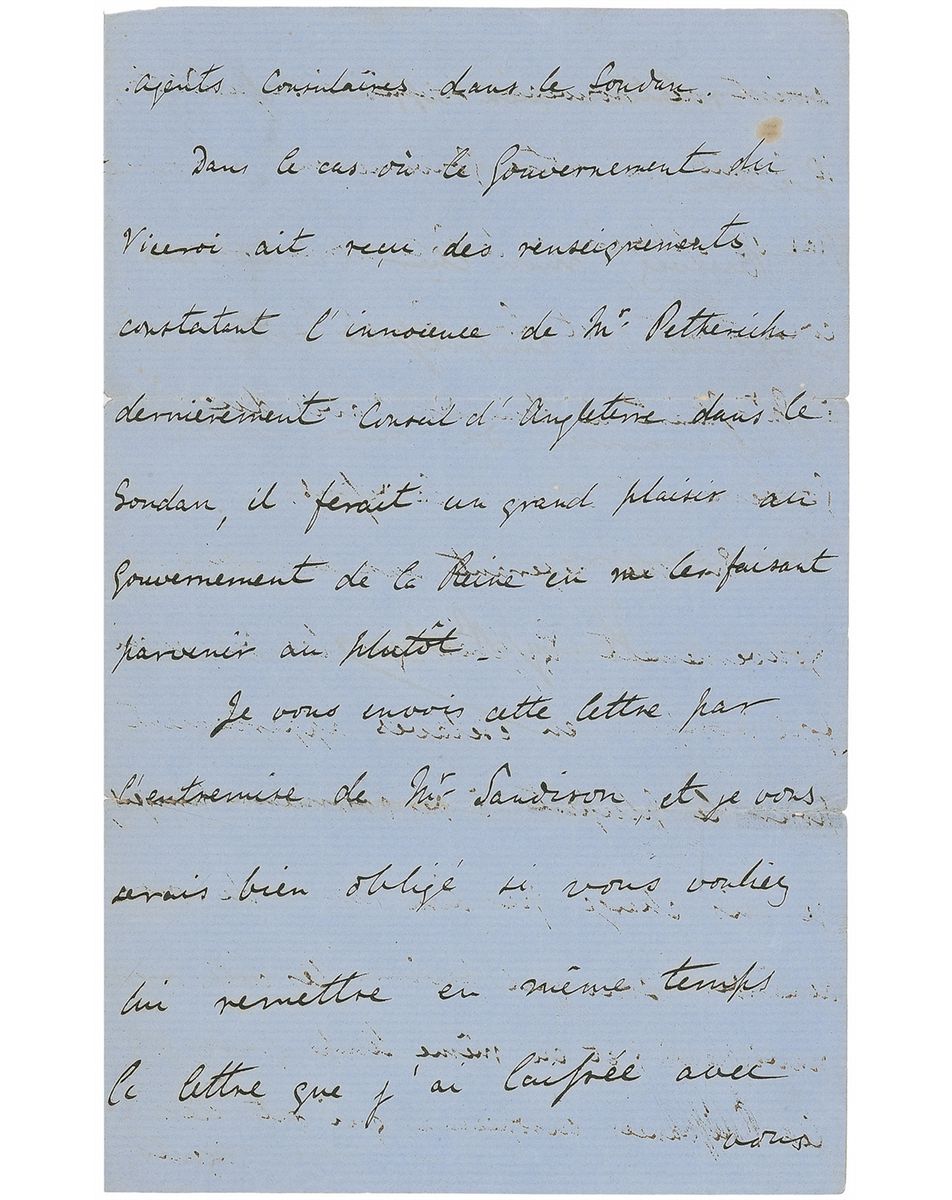 agents Consulaires dans le Soudan.
Dans le cas où le Gouvernement du
Viceroi ait reçu des renseignements
constatant l'innocence de Mr Petherick
dernièrement Consul d'Angleterre dans le
Soudan, il ferait un grand plaisir au
Gouvernement de la Reine en me les faisant
parvenir au plutôt.
Je vous envois cette lettre par
l'entremise de Mr Sandison et je vous
serais bien obligé si vous vouliez
lui remettre en même temps
la lettre que j'ai laissée avec
vous